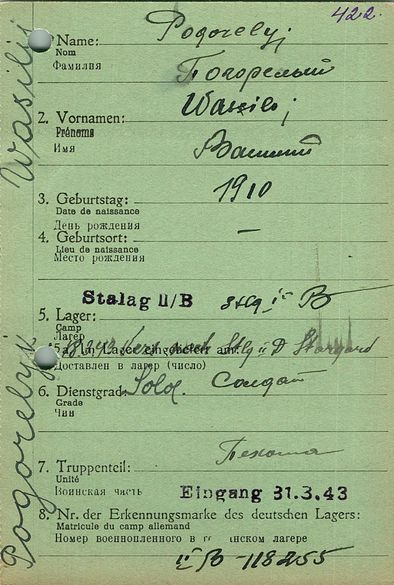 422.
1. Name: Pogorelyj
Nom
Фамилия Погорелый
Wassilij
2. Vornamen:
Prénoms
Имя Василий
1910
3. Geburtstag:
Date de naissance
День рождения
4. Geburtsort: —
Lieu de naissance
Место рождения
Stalag II/B Stlg II B
5. Lager:
Camp
Лагерь
5a. In Lager eingeliefert am: nach Stlg II D Stargard
Доставлен в лагерь (число)
6. Dienstgrad: Sold. Солдат
Grade
Чин
Пехота
7. Truppenteil:
Unité
Воинская часть Eingang 31.3.43
8. Nr. der Erkennungsmarke des deutschen Lagers:
Matricule du camp allemand
Номер военнопленного в г нском лагере
II B - 118255
Pogorelyk Wasilij